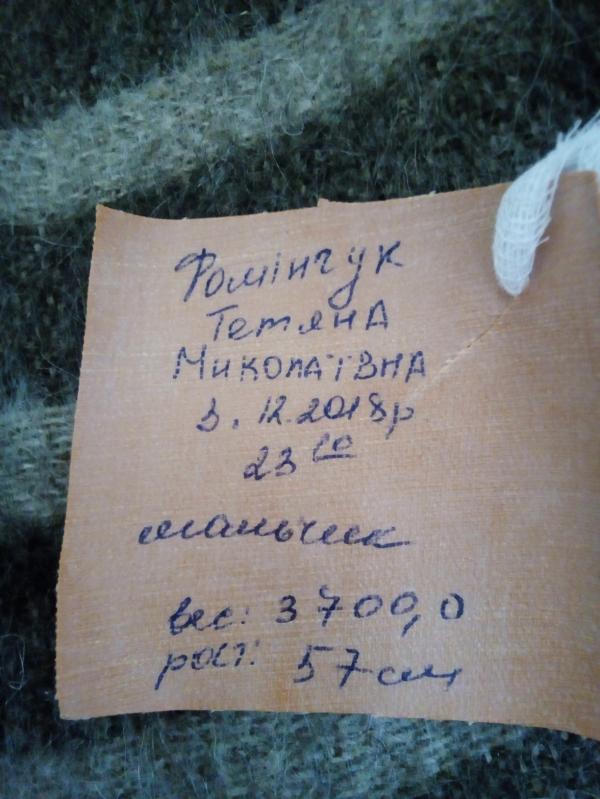 Фомінчук
Тетяна
Миколаївна
3.12.2018р
23 10
мальчик
вес: 3700,0
рост: 57см